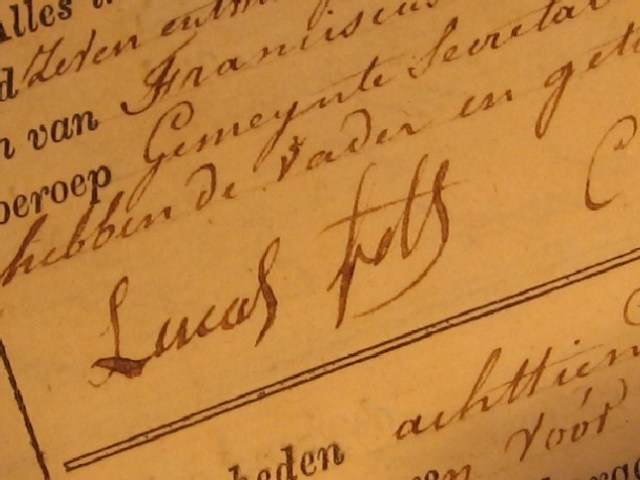 Alles
Zeven
van Franciscus
beroep Gemeynte Secretar
hebben de Vader en get
Lucas
achttien
heden
vóór